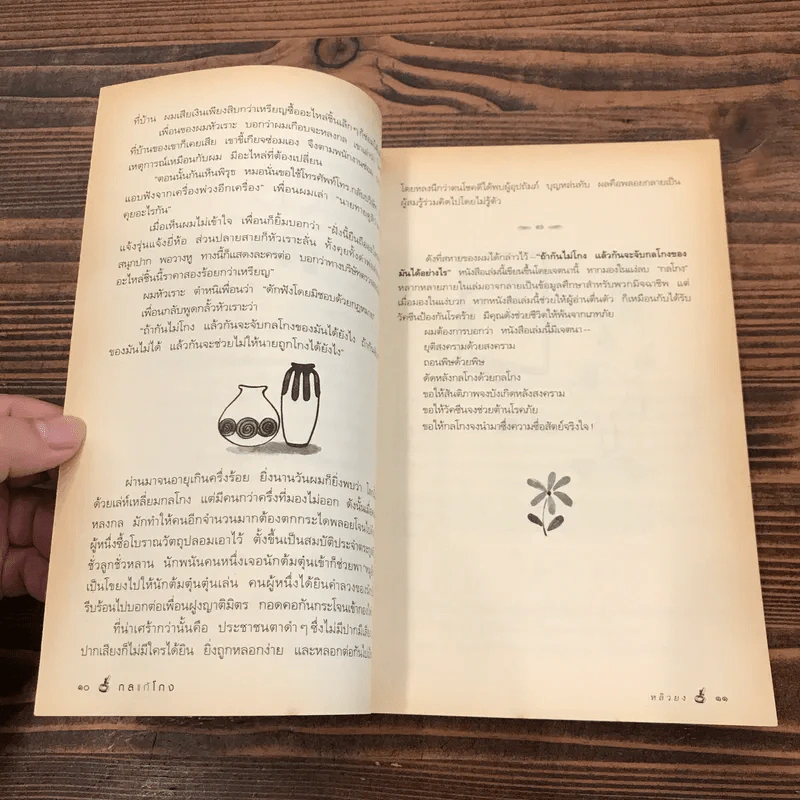 ที่บ้าน ผมเสียเงินเพียงสิบกว่าเหรียญซื้ออะไหล่ชิ้นเล็กๆ
เพื่อนของผมหัวเราะ บอกว่าผมเกือบจะหลงกล
ที่บ้านของเขาก็เคยเสีย เขาขี้เกียจซ่อมเอง จึงตามพนักงานซ่อม
เหตุการณ์เหมือนกับผม มีอะไหล่ที่ต้องเปลี่ยน
"ตอนนั้นกันเห็นพิรุธ หมอนั่นขอใช้โทรศัพท์โทร.กลับบริษัท
แอบฟังจากเครื่องพ่วงอีกเครื่อง" เพื่อนผมเล่า
คุยอะไรกัน"
เมื่อเห็นผมไม่เข้าใจ เพื่อนก็ยิ้มบอกว่า
แจ้งรุ่นแจ้งยี่ห้อ ส่วนปลายสายก็หัวเราะลั่น
สนุกปาก พอวางหู ทางนี้ก็แสดงละครต่อ บอกว่าทางบริษัท
อะไหล่ชิ้นนี้ราคาสองร้อยกว่าเหรียญ"
ผมหัวเราะ ตำหนิเพื่อนว่า "ดักฟังโดยมิชอบด้วยกฎหมาย
เพื่อนกลับพูดกลั้วหัวเราะว่า
"ถ้ากันไม่โกง แล้วกันจะจับกลโกงของมันได้ยังไง
ของมันไม่ได้ แล้วกันจะช่วยไม่ให้นายถูกโกงได้ยังไง"
ผ่านมาจนอายุเกินครึ่งร้อย ยิ่งนานวันผมก็ยิ่งพบว่า
ด้วยเล่ห์เหลี่ยมกลโกง แต่มีคนกว่าครึ่งที่มองไม่ออก
หลงกล มักทำให้คนอีกจำนวนมากต้องตกกระไดพลอยโจน
ผู้หนึ่งซื้อโบราณวัตถุปลอมเอาไว้ ตั้งขึ้นเป็นสมบัติประจำตระกูล
ชั่วลูกชั่วหลาน นักพนันคนหนึ่งเจอนักต้มตุ๋นเข้าก็ช่วยพา
เป็นโขยงไปให้นักต้มตุ๋นตุ๋นเล่น คนผู้หนึ่งได้ยินคำลวง
รีบร้อนไปบอกต่อเพื่อนฝูงญาติมิตร กอดคอกันกระโจนเข้า
ที่น่าเศร้ากว่านั้นคือ ประชาชนตาดำๆ ซึ่งไม่มีปากมีเสียง
ปากเสียงก็ไม่มีใครได้ยิน ยิ่งถูกหลอกง่าย และหลอกต่อกัน
๑๐ กลแก้โกง
โดยหลงนึกว่าตนโชคดีได้พบผู้อุปถัมภ์ บุญหล่นทับ ผลคือพลอยกลายเป็น
ผู้สมรู้ร่วมคิดไปโดยไม่รู้ตัว
ดังที่สหายของผมได้กล่าวไว้ – "ถ้ากันไม่โกง แล้วกันจะจับกลโกงของ
มันได้อย่างไร" หนังสือเล่มนี้เขียนขึ้นโดยเจตนานี้ หากมองในแง่ลบ "กลโกง"
หลากหลายภายในเล่มอาจกลายเป็นข้อมูลศึกษาสำหรับพวกมิจฉาชีพ แต่
เมื่อมองในแง่บวก หากหนังสือเล่มนี้ช่วยให้ผู้อ่านตื่นตัว ก็เหมือนกับได้รับ
วัคซีนป้องกันโรคร้าย มีคุณดังช่วยชีวิตให้พ้นจากเภทภัย
ผมต้องการบอกว่า หนังสือเล่มนี้มีเจตนา –
ยุติสงครามด้วยสงคราม
ถอนพิษด้วยพิษ
ตัดหลังกลโกงด้วยกลโกง
ขอให้สันติภาพจงบังเกิดหลังสงคราม
ขอให้วัคซีนจงช่วยต้านโรคภัย
ขอให้กลโกงจงนำมาซึ่งความซื่อสัตย์จริงใจ!
หลิวยง ๑๑